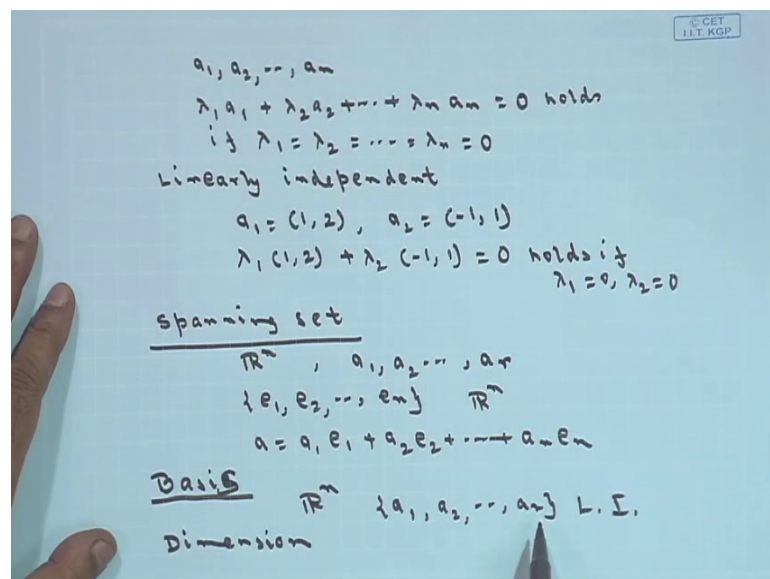 © CET
I.I.T. KGP
a₁, a₂, --, aₙ
λ₁a₁ + λ₂a₂ + --- + λₙ aₙ = 0 holds
if λ₁ = λ₂ = ---- = λₙ = 0
Linearly independent
a₁ = (1, 2), a₂ = (-1, 1)
λ₁ (1, 2) + λ₂ (-1, 1) = 0 holds if
λ₁ = 0, λ₂ = 0
Spanning set
ℝⁿ , a₁, a₂ --- , aᵣ
{e₁, e₂, --, eₙ} ℝⁿ
a = a₁ e₁ + a₂ e₂ + ---- + aₙ eₙ
Basis
ℝⁿ {a₁, a₂, --, aᵣ} L. I.
Dimension